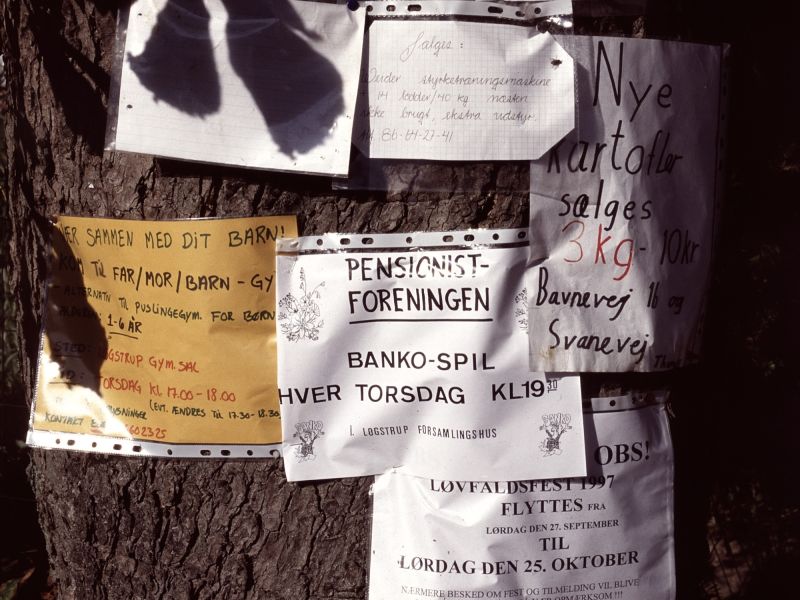 Sælges:
Weider styrketræningsmaskine
14 lodder/40 kg næsten
ikke brugt, ekstra udstyr.
86-64-27-41
Nye
kartofler
sælges
3 kg - 10 kr
Bavnevej 16 og
Svanevej
VÆR SAMMEN MED DIT BARN!
KOM TIL FAR/MOR/BARN - GY
ALTERNATIV TIL PUSLINGEGYM. FOR BØRN
ALDEREN: 1-6 ÅR
STED: LØGSTRUP GYM.SAL
TID: TORSDAG KL 17.00 - 18.00
(EVT. ÆNDRES TIL 17.30 - 18.30
KONTAKT
602325
PENSIONIST-
FORENINGEN
BANKO-SPIL
HVER TORSDAG KL19 30
I. LØGSTRUP FORSAMLINGSHUS
BANKO
BANKO
OBS!
LØVFALDSFEST 1997
FLYTTES FRA
LØRDAG DEN 27. SEPTEMBER
TIL
LØRDAG DEN 25. OKTOBER
NÆRMERE BESKED OM FEST OG TILMELDING VIL BLIVE
OPMÆRKSOM !!!